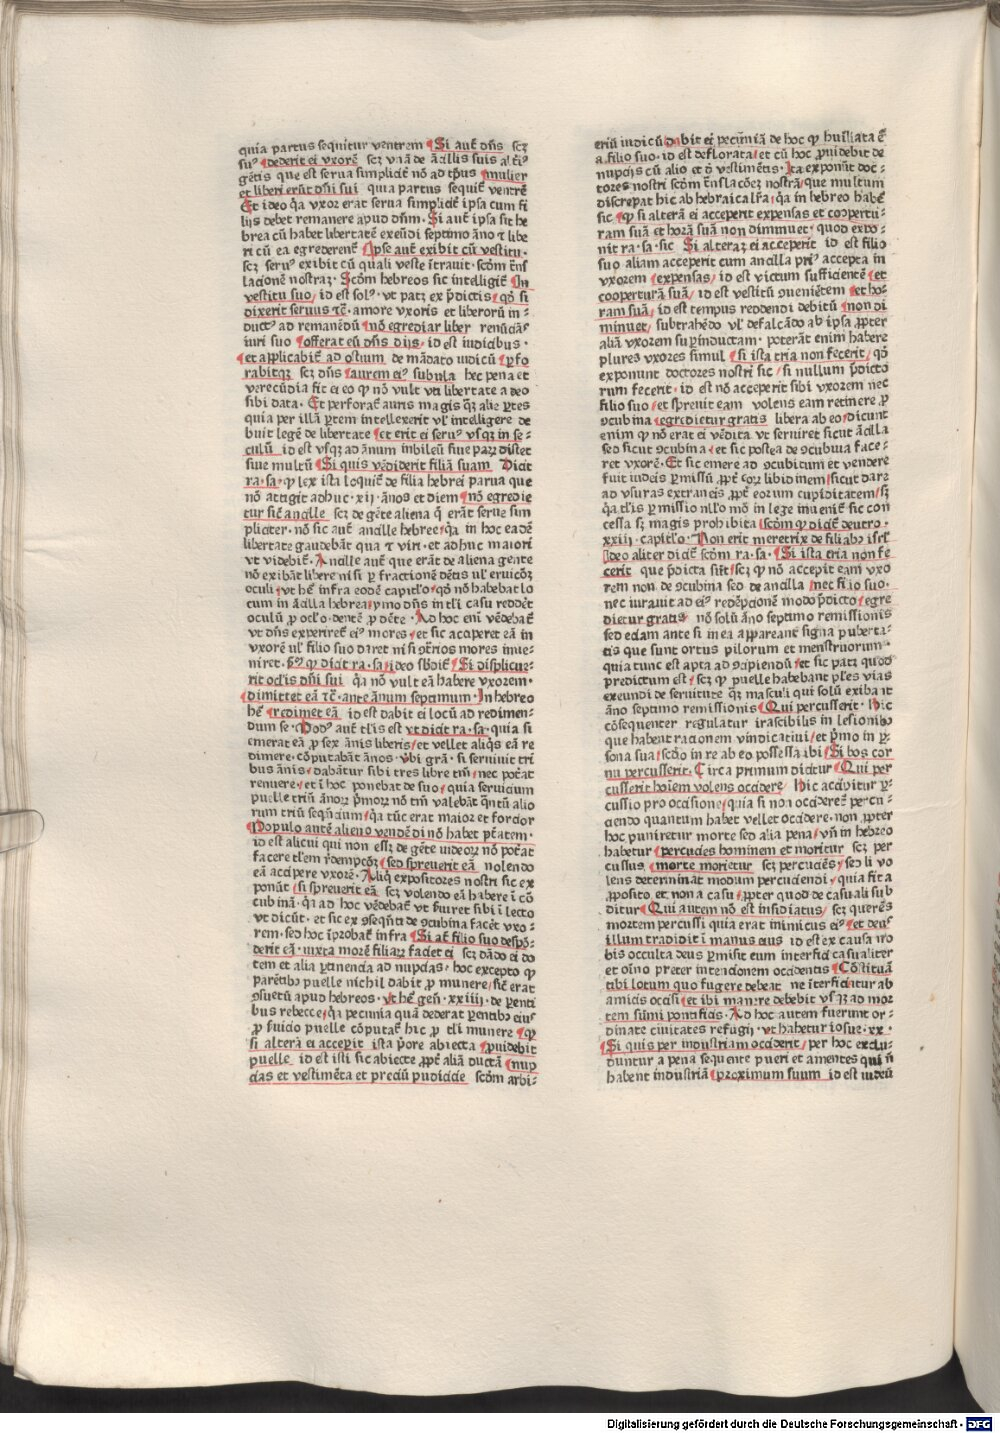 quia partus sequitur ventrem Si aut̄ dn̄s scꝫ
suꝰ dederit ei vxorē scꝫ vnā de ācillis suis al
gētis que est serua simplicit̄ nō ad tp̄us mulier
et liberi erūt dn̄i sui quia partus sequit̄ ventrē
Et ideo q̄a vxor erat serua simplicit̄ ipsa cum fi
liis debet remanere apud dn̄m. Si aut̄ ipsa sit he
brea cū habet libertatē exeūdi septimo āno ⁊ libe
ri cū ea egrederent̄ Ipse aut̄ exibit cū vestitu.
scꝫ seruꝰ exibit cū quali veste ītrauit. scd̄m trāns
lacionē nostraꝫ. Scd̄m hebreos sic intelligit̄ In
vestitu suo, id est solꝰ. vt patꝫ ex p̄dictis qd̄ si
dixerit seruus ⁊c̄. amore vxoris et liberorū in-
ductꝰ ad remanēdū nō egrediar liber renūciās
iuri suo offerat eū dn̄s diis, id est iudicibus.
et applicabit̄ ad ostium de mādato iudicū ꝑfo
rabitqꝫ scꝫ dn̄s aurem eiꝰ subula hec pena et
verecūdia fit ei eo ꝙ nō vult vti libertate a deo
sibi data. Et perforat̄ auris magis qꝫ alie ꝑtes
quia per illā ꝑtem intellexerit vl̓ intelligere de
buit legē de libertate et erit ei seruꝰ vsqꝫ in se-
culū id est vsqꝫ ad ānum iubileū siue parꝫ distet
siue multū Si quis vēdiderit filiā suam Dicit
ra. sa. ꝙ lex ista loquit̄ de filia hebrei parua que
nō attigit adhuc. xij. ānos et diem nō egredie
tur sic̄ ancille scꝫ de gēte aliena q̄ erāt serue sim
pliciter. nō sic aut̄ ancille hebree q̄a in hoc eadē
libertate gaudebāt qua ⁊ viri. et adhuc maiori
vt videbit̄. Ancille aut̄ que erāt de aliena gente
nō exibāt libere nisi ꝑ fractionē dētis vl̓ eruicōꝫ
oculi vt hē infra eodē capitl̄o qd̄ nō habebat lo
cum in ācilla hebrea ymo dn̄s in tl̄i casu reddēt
oculū ꝑ ocl̄o. dentē ꝑ dēte. Ad hoc eni vēdebat̄
vt dn̄s experiret̄ eiꝰ mores et sic acaperet eā in
vxorē vl̓ filio suo daret nisi ꝯtrios mores inue-
niret. ꝙ dicit ra. sa. ideo sbdit̄ Si displicue-
rit oclīs dn̄i sui q̄a nō vult eā habere vxorem.
dimittet eā ⁊c̄. ante ānum septimum. In hebreo
hē redimet eā id est dabit ei locū ad redimen-
dum se. Modꝰ aut̄ tl̄is est vt dicit ra. sa. quia si
emerat eā ꝑ sex ānis liberis et vellet aliqs eā re
dimere. cōputabāt ānos. vbi grā. si seruiuit tri
bus ānis. dabātur sibi tres libre tm̄ nec poterat
renuere. et ī hoc ponebat̄ de suo quia seruicium
puelle triū ānoꝝ pīmoꝝ nō tm̄ valebāt q̄ntū alio
rum triū seqn̄cium. q̄a tūc erat maior et forcior
Populo autē alieno vendēdi nō habet pt̄atem.
id est alicui qui non esset de gēte iudeoꝝ nō poterat
facere tl̄em redempcōꝫ sed spreuerit eā nolendo
eā accipere vxorē. Aliq̄ expositores nostri sic ex
ponūt si spreuerit eā scꝫ volendo eā habere ī cō
cubinā. q̄a ad hoc vēdebat̄ vt s̄uiret sibi ī lecto
vt dicūt. et sic ex ꝯseqn̄ti de ꝯcubina facēt vxo-
rem. sed hoc īprobat̄ infra Si at̄ filio suo despō-
derit eā. iuxta morē filiaꝝ faciet ei scꝫ dādo ei do
tem et alia ꝑtinencia ad nupcias. hoc excepto ꝙ
parētibꝰ puelle nichil dabit ꝑ munere sic̄ erat
ꝯsuetū apud hebreos. vt hē gen̄. xxiiij. de ꝑenti
bus rebecce q̄a pecunia quā dederat ꝑentibꝰ eiꝰ
ꝑ s̄uicio puelle cōputat̄ hic ꝑ tl̄i munere ꝙ
si alterā ei accepit ista p̄ore abiecta ꝓuidebit
puelle id est isti sic abiecte ꝓpt̄ aliā ductā nup
cias et vestimēta et preciū pudicicie scd̄m arbi-
triū iudicū dabit ei pecuniā de hoc ꝙ huīliata ē
a filio suo. id est deflorata et cū hoc ꝓuidebit de
nupciis cū alio et de vestimētis. Ita exponūt doc-
tores nostri scd̄m trāslacōeꝫ nostrā que multum
discrepat hic ab hebraica l̄ra q̄a in hebreo habet̄
sic ꝙ si alterā ei acceperit expensas et coopertu-
ram suā et horā suā non diminuet. quod expo-
nit ra. sa. sic Si alteraꝫ ei acceperit id est filio
suo aliam acceperit cum ancilla priꝰ accepta in
vxorem expensas, id est victum sufficientē et
cooperturā suā, id est vestitū ꝯueniētem et ho-
ram suā, id est tempus reddendi debitū non di
minuet, subtrahēdo vl̓ defalcādo ab ipsa ꝓpter
aliā vxorem suꝑinductam. poterāt enim habere
plures vxores simul si ista tria non fecerit, qd̄
exponunt doctores nostri sic, si nullum p̄dicto
rum fecerit. id est nō acceperit sibi vxorem nec
filio suo et spreuit eam volens eam retinere ꝑ
ꝯcubina egredietur gratis libera ab eo dicunt
enim ꝙ nō erat ei vēdita vt seruiret sicut ācilla
sed sicut ꝯcubina et sic postea de ꝯcubina face-
ret vxorē. Et sic emere ad ꝯcubitum et vendere
fuit iudeis ꝑmissū ꝓpt̄ eoꝝ libidinem sicut dare
ad vsuras extraneis ꝓpt̄ eorum cupiditatem sꝫ
q̄a tl̄is ꝑmissio nl̄lo mō in lege inuenit̄ sic con
cessa sꝫ magis prohibita scd̄m ꝙ dicit̄ deutro.
xxiij. capitl̄o. Non erit meretrix de filiabꝰ isrl̓
Ideo aliter dicit̄ scd̄m ra. sa. Si ista tria non fe
cerit que p̄dicta sūt scꝫ ꝙ nō accepit eam vxo
rem non de ꝯcubina sed de ancilla nec filio suo.
nec iurauit ad eiꝰ redēpcionē modo p̄dicto egre
dietur gratis nō solū āno septimo remissionis
sed eciam ante si in ea appareant̄ signa puberta-
tis que sunt ortus pilorum et menstruorum
quia tunc est apta ad ꝯcipiendū et sic patꝫ quod
predictum est scꝫ ꝙ puelle habebant pl̄es vias
exeundi de seruitute qꝫ masculi qui solū exibant
āno septimo remissionis Qui percusserit. Hic
cōsequenter regulatur irascibilis in lesionibꝰ
que habent racionem vindicatiui et p̄mo in ꝑ-
sona sua scd̄o in re ab eo possessa ibi Si bos cor
nu percusserit. Circa primum dicitur Qui per
cusserit hoīem volens occidere, Hic accipitur ꝑ-
cussio pro occisione quia si non occideret percu-
ciendo quantum habet vellet occidere. non ꝓpter
hoc puniretur morte sed alia pena vn̄ in hebreo
habetur percucies hominem et morietur scꝫ per
cussus morte morietur scꝫ percuciēs, sed li vo
lens determinat modum percuciendi quia fit a
ꝓposito et non a casu ꝓpter quod de casuali sub
ditur Qui autem nō est insidiatus scꝫ querēs
mortem percussi quia erat inimicus eiꝰ et deus
illum tradidit ī manus eius id est ex causa no
bis occulta deus ꝑmisit eum interfici casualiter
et oīno preter intencionem occidentis Cōstituā
tibi locum quo fugere debeat ne īterficiatur ab
amicis occisi et ibi manere debebit vsqꝫ ad mor
tem sūmi pontificis. Ad hoc autem fuerunt or-
dinate ciuitates refugij. vt habetur iosue. xx.
Si quis per industriam occiderit, per hoc exclu-
duntur a pena sequente pueri et amentes qui n̄
habent industriā proximum suum id est iudeū
Digitalisierung gefördert durch die Deutsche Forschungsgemeinschaft - DFG